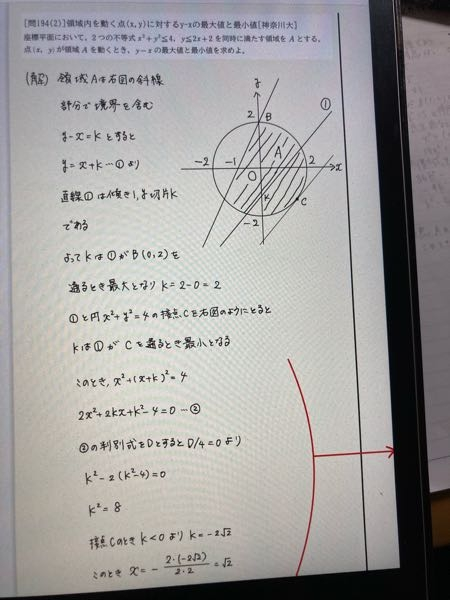 [問194(2)]領域内を動く点(x,y)に対するy-xの最大値と最小値[神奈川大]
座標平面において、2つの不等式 x²+y²≦4, y≦2x+2 を同時に満たす領域を A とする。
点(x, y)が領域 A を動くとき、y-x の最大値と最小値を求めよ。
(解) 領域Aは右図の斜線
部分で境界を含む
y-x=k とすると
y=x+k …① より
直線①は傾き1, y切片k
である
よってkは①がB(0,2)を
通るとき最大となり k=2-0=2
①と円x²+y²=4の接点Cを右図のようにとると
kは①がCを通るとき最小となる
このとき, x²+(x+k)²=4
2x²+2kx+k²-4=0 …②
②の判別式をDとするとD/4=0より
k²-2(k²-4)=0
k²=8
接点Cのときk<0より k=-2√2
このとき x=-2·(-2√2)/2·2=√2
y
①
2
B
A
-2
-1
O
2
x
k
C
-2